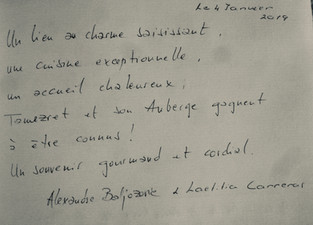 Le 4 Janvier
2019
Un lieu au charme saisissant,
une cuisine exceptionnelle,
un accueil chaleureux,
Tamezret et son Auberge gagnent
à être connus !
Un souvenir gourmand et cordial.
Alexandre & Laetitia Carreras